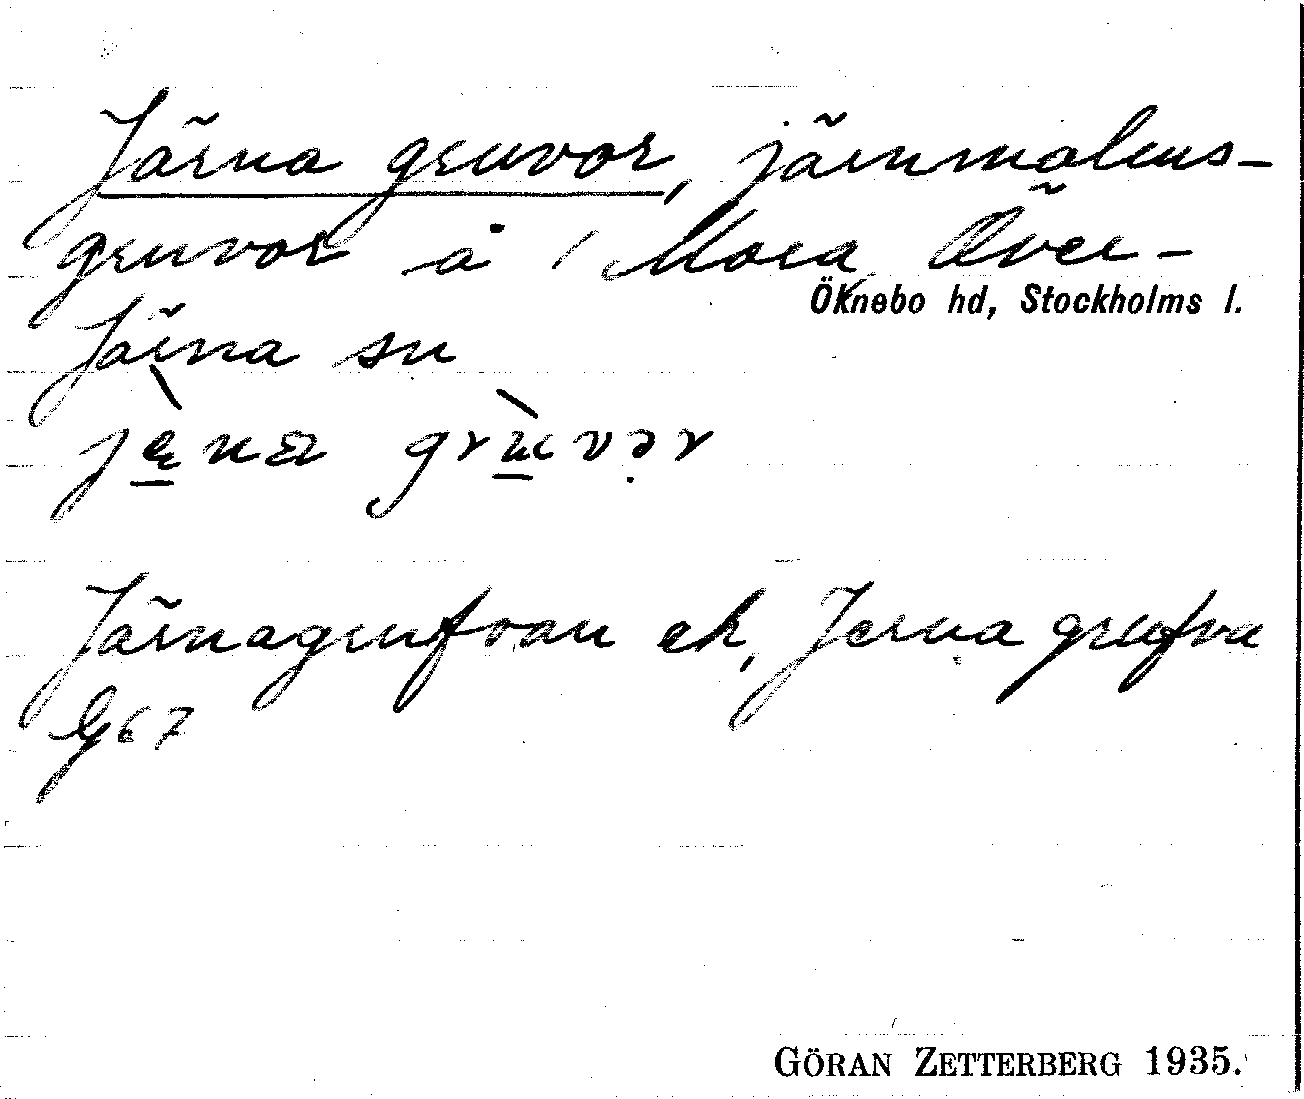 Järna gruvor, järnmalms-
gruvor å 1 Mora Över-
Öknebo hd, Stockholms l.
Järna sn
Järnagrufvan ek, Jerna grufva
G67
GÖRAN ZETTERBERG 1935.